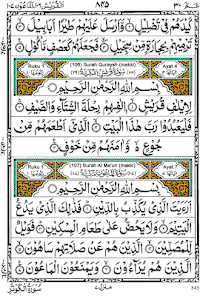 كَيْدَهُمْ فِي تَضْلِيْلٍ ۝ وَّاَرْسَلَ عَلَيْهِمْ طَيْرًا اَبَابِيْلَ ۝
تَرْمِيْهِمْ بِحِجَارَةٍ مِّنْ سِجِّيْلٍ ۝ فَجَعَلَهُمْ كَعَصْفٍ مَّاْكُوْلٍ ۝
Ruku 1 (106) Surah Quraysh (makki) Ayat 4
بِسْمِ اللّٰهِ الرَّحْمٰنِ الرَّحِيْمِ
لِاِيْلٰفِ قُرَيْشٍ ۝ اٖلٰفِهِمْ رِحْلَةَ الشِّتَآءِ وَالصَّيْفِ ۝
فَلْيَعْبُدُوْا رَبَّ هٰذَا الْبَيْتِ ۝ الَّذِيْٓ اَطْعَمَهُمْ مِّنْ
جُوْعٍ ۙ وَّاٰمَنَهُمْ مِّنْ خَوْفٍ ۝
Ruku 1 (107) Surah Al Ma'un (makki) Ayat 7
بِسْمِ اللّٰهِ الرَّحْمٰنِ الرَّحِيْمِ
اَرَءَيْتَ الَّذِيْ يُكَذِّبُ بِالدِّيْنِ ۝ فَذٰلِكَ الَّذِيْ يَدُعُّ
الْيَتِيْمَ ۝ وَلَا يَحُضُّ عَلٰى طَعَامِ الْمِسْكِيْنِ ۝ فَوَيْلٌ
لِّلْمُصَلِّيْنَ ۝ الَّذِيْنَ هُمْ عَنْ صَلَاتِهِمْ سَاهُوْنَ ۝
الَّذِيْنَ هُمْ يُرَآءُوْنَ ۝ وَيَمْنَعُوْنَ الْمَاعُوْنَ ۝